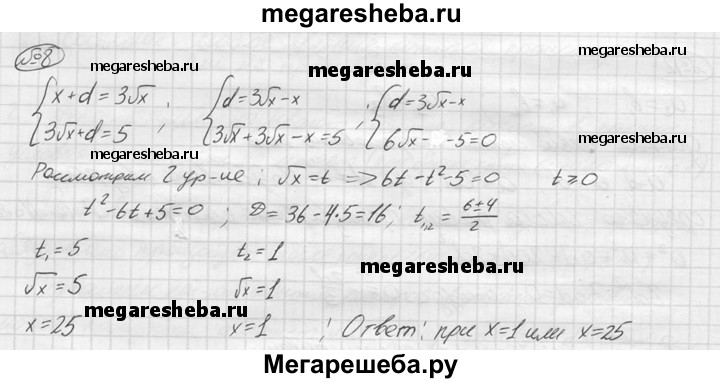 megaresheba.ru
№8
megaresheba.ru megaresheba.ru
{x+d=3√x ; {d=3√x-x ; {d=3√x-x
{3√x+d=5 ; {3√x+3√x-x=5 ; {6√x- -5=0
megaresheba.ru megaresheba.ru
Рассмотрим 2 ур-ие ; √x=t => 6t-t²-5=0 t≥0
t²-6t+5=0 ; D=36-4·5=16; t₁,₂=(6±4)/2
t₁=5 t₂=1
megaresheba.ru
√x=5 √x=1
megaresheba.ru
x=25 x=1 ; Ответ: при x=1 или x=25
Мегарешеба.ру